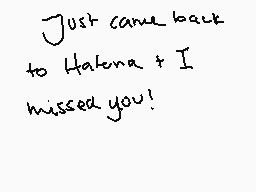 Just came back
to Hatena + I
missed you!